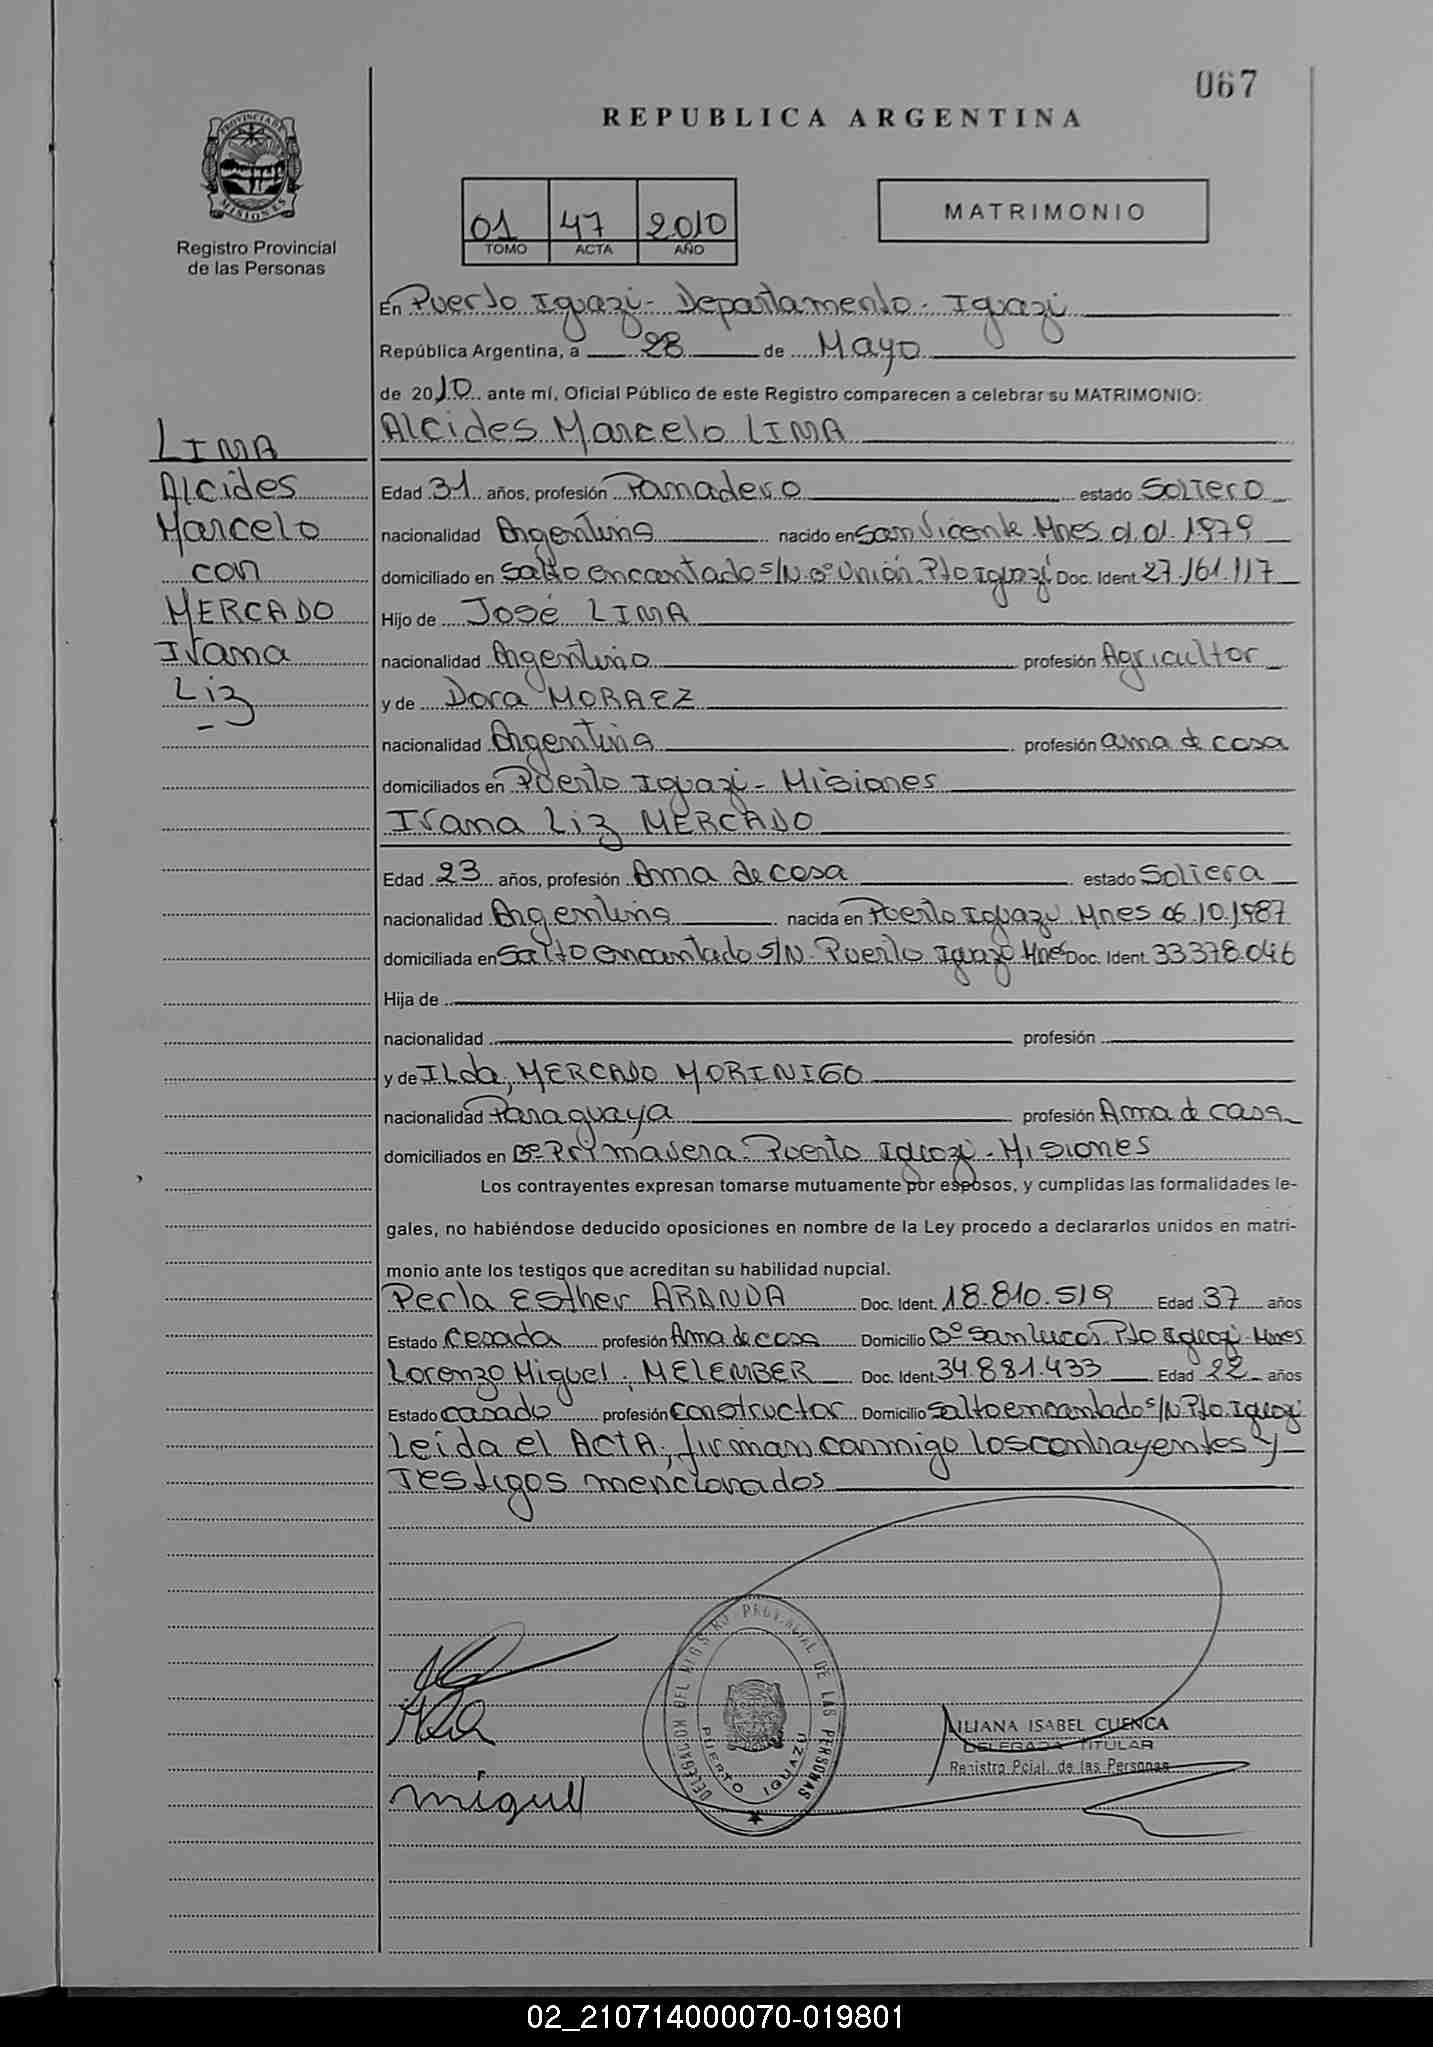 067
REPUBLICA ARGENTINA
PROVINCIA DE
MISIONES
Registro Provincial
de las Personas
01 47 2010
TOMO ACTA AÑO
MATRIMONIO
En Puerto Iguazú - Departamento - Iguazú
República Argentina, a 28 de Mayo
de 2010 ante mí, Oficial Público de este Registro comparecen a celebrar su MATRIMONIO:
Alcides Marcelo LIMA
LIMA
Alcides
Marcelo
con
MERCADO
Ivana
Liz
Edad 31 años, profesión Panadero estado Soltero
nacionalidad Argentina nacido en San Vicente Mnes 01.01.1979
domiciliado en Salto encantado s/N Bº Unión. Pto Iguazú Doc. Ident. 27.161.117
Hijo de José LIMA
nacionalidad Argentino profesión Agricultor
y de Dora MORAEZ
nacionalidad Argentina profesión ama de casa
domiciliados en Puerto Iguazú - Misiones
Ivana Liz MERCADO
Edad 23 años, profesión Ama de casa estado Soltera
nacionalidad Argentina nacida en Puerto Iguazú Mnes 06.10.1987
domiciliada en Salto encantado s/N. Puerto Iguazú Mnes Doc. Ident. 33378.046
Hija de
nacionalidad profesión
y de ILda, MERCADO MORINIGO
nacionalidad Paraguaya profesión Ama de casa
domiciliados en Bº Primavera. Puerto Iguazú - Misiones
Los contrayentes expresan tomarse mutuamente por esposos, y cumplidas las formalidades le-
gales, no habiéndose deducido oposiciones en nombre de la Ley procedo a declararlos unidos en matri-
monio ante los testigos que acreditan su habilidad nupcial.
Perla Esther ARANDA Doc. Ident. 18.810.519 Edad 37 años
Estado casada profesión Ama de casa Domicilio Bº San Lucas. Pto Iguazú - Mnes
Lorenzo Miguel, MELEMBER Doc. Ident. 34.881.433 Edad 22 años
Estado casado profesión constructor Domicilio Salto encantado s/N Pto. Iguazú
Leída el ACTA, firman conmigo los contrayentes y
Testigos mencionados
DELEGACION DEL REGISTRO PROVINCIAL DE LAS PERSONAS
PUERTO IGUAZU
LILIANA ISABEL CUENCA
DELEGADA TITULAR
Registro Pcial. de las Personas
miguel
02_210714000070-019801